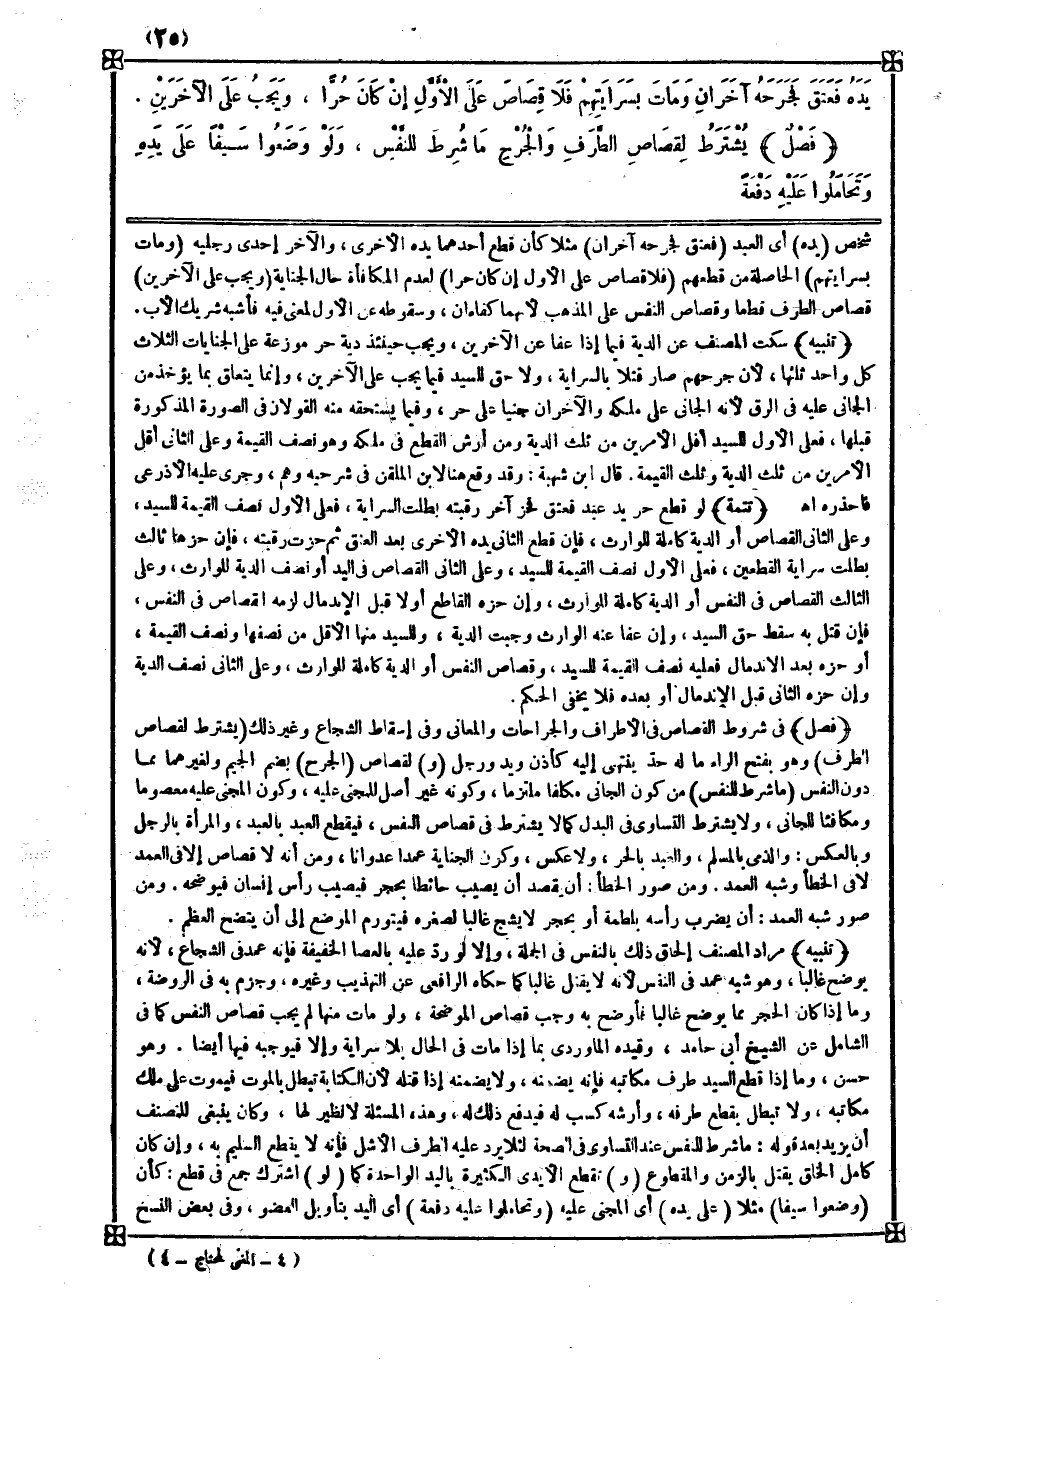 (٢٥)
يَدَهُ فَعَتَقَ فَجَرَحَهُ آخَرَانِ وَمَاتَ بِسِرَايَتِهِمْ فَلَا قِصَاصَ عَلَى الْأَوَّلِ إِنْ كَانَ حُرًّا ، وَيَجِبُ عَلَى الْآخَرَيْنِ .
﴿ فَصْلٌ ﴾ يُشْتَرَطُ لِقِصَاصِ الطَّرَفِ وَالْجُرْحِ مَا شُرِطَ لِلنَّفْسِ ، وَلَوْ وَضَعُوا سَيْفًا عَلَى يَدِهِ
وَتَحَامَلُوا عَلَيْهِ دَفْعَةً
شخص (يده) أى العبد (فعتق فجرحه آخران) مثلا كأن قطع أحدهما يده الأخرى ، والآخر إحدى رجليه (ومات
بسرايتهم) الحاصلة من قطعهم (فلا قصاص على الأول إن كان حرا) لعدم المكافأة حال الجناية (ويجب على الآخرين)
قصاص الطرف قطعا وقصاص النفس على المذهب لأنهما كفاءان ، وسقوطه عن الأول لمعنى فيه فأشبه شريك الأب .
﴿ تنبيه ﴾ سكت المصنف عن الدية فيما إذا عفا عن الآخرين ، ويجب حينئذ دية حر موزعة على الجنايات الثلاث
كل واحد ثلثها ، لأن جرحهم صار قتلا بالسراية ، ولا حق للسيد فيما يجب على الآخرين ، وإنما يتعلق بما يؤخذ من
الجانى عليه فى الرق لأنه الجانى على ملكه والآخران جنيا على حر ، وفيما يستحقه منه القولان فى الصورة المذكورة
قبلها ، فعلى الأول للسيد أقل الأمرين من ثلث الدية ومن أرش القطع فى ملكه وهو نصف القيمة وعلى الثانى أقل
الأمرين من ثلث الدية وثلث القيمة . قال ابن شهبة : وقد وقع هنا لابن الملقن فى شرحيه وهم ، وجرى عليه الأذرعى
فاحذره اه ﴿ تتمة ﴾ لو قطع حر يد عبد فعتق فحز آخر رقبته بطلت السراية ، فعلى الأول نصف القيمة للسيد ،
وعلى الثانى القصاص أو الدية كاملة للوارث ، فإن قطع الثانى يده الأخرى بعد العتق ثم حزت رقبته ، فإن حزها ثالث
بطلت سراية القطعين ، فعلى الأول نصف القيمة للسيد ، وعلى الثانى القصاص فى اليد أو نصف الدية للوارث ، وعلى
الثالث القصاص فى النفس أو الدية كاملة للوارث ، وإن حزه القاطع أولا قبل الإندمال لزمه القصاص فى النفس ،
فإن قتل به سقط حق السيد ، وإن عفا عنه الوارث وجبت الدية ، وللسيد منها الأقل من نصفها ونصف القيمة ،
أو حزه بعد الاندمال فعليه نصف القيمة للسيد ، وقصاص النفس أو الدية كاملة للوارث ، وعلى الثانى نصف الدية
وإن حزه الثانى قبل الإندمال أو بعده فلا يخفى الحكم .
﴿ فصل ﴾ فى شروط القصاص فى الأطراف والجراحات والمعانى وفى إسقاط الشجاع وغير ذلك (يشترط لقصاص
الطرف) وهو بفتح الراء ما له حد ينتهى إليه كأذن ويد ورجل (و) لقصاص (الجرح) بضم الجيم ولغيرهما مما
دون النفس (ما شرط للنفس) من كون الجانى مكلفا ملتزما ، وكونه غير أصل للمجنى عليه ، وكون المجنى عليه معصوما
ومكافئا للجانى ، ولا يشترط التساوى فى البدل كما لا يشترط فى قصاص النفس ، فيقطع العبد بالعبد ، والمرأة بالرجل
وبالعكس : والذمى بالمسلم ، والعبد بالحر ، ولا عكس ، وكون الجناية عمدا عدوانا ، ومن أنه لا قصاص إلا فى العمد
لا فى الخطأ وشبه العمد . ومن صور الخطأ : أن يقصد أن يصيب حائطا بحجر فيصيب رأس إنسان فيوضحه . ومن
صور شبه العمد : أن يضرب رأسه بلطمة أو بحجر لا يشج غالبا لصغره فيتورم الموضع إلى أن يتضح العظم .
﴿ تنبيه ﴾ مراد المصنف إلحاق ذلك بالنفس فى الجملة ، وإلا لورد عليه بالعصا الخفيفة فإنه عمد فى الشجاع ، لأنه
يوضح غالبا ، وهو شبه عمد فى النفس لأنه لا يقتل غالبا كما حكاه الرافعى عن التهذيب وغيره ، وجزم به فى الروضة ،
وما إذا كان الحجر مما يوضح غالبا فأوضح به وجب قصاص الموضحة ، ولو مات منها لم يجب قصاص النفس كما فى
الشامل عن الشيخ أبى حامد ، وقيده الماوردى بما إذا مات فى الحال بلا سراية وإلا فيوجبه فيها أيضا . وهو
حسن ، وما إذا قطع السيد طرف مكاتبه فإنه يضمنه ، ولا يضمنه إذا قتله لأن الكتابة تبطل بالموت فيموت على ملك
مكاتبه ، ولا تبطل بقطع طرفه ، وأرشه كسب له فيدفع ذلك له ، وهذه المسئلة لا نظير لها ، وكان ينبغى للمصنف
أن يزيد بعد قوله : ما شرط للنفس عند التساوى فى الصحة لئلا يرد عليه الطرف الأشل فإنه لا يقطع السليم به ، وإن كان
كامل الخلق يقتل بالزمن والمقطوع (و) تقطع الأيدى الكثيرة باليد الواحدة كما (لو) اشترك جمع فى قطع : كأن
(وضعوا سيفا) مثلا (على يده) أى المجنى عليه (وتحاملوا عليه دفعة) أى اليد بتأويل العضو ، وفى بعض النسخ
( ٤ - المغنى لمحتاج - ٤ )